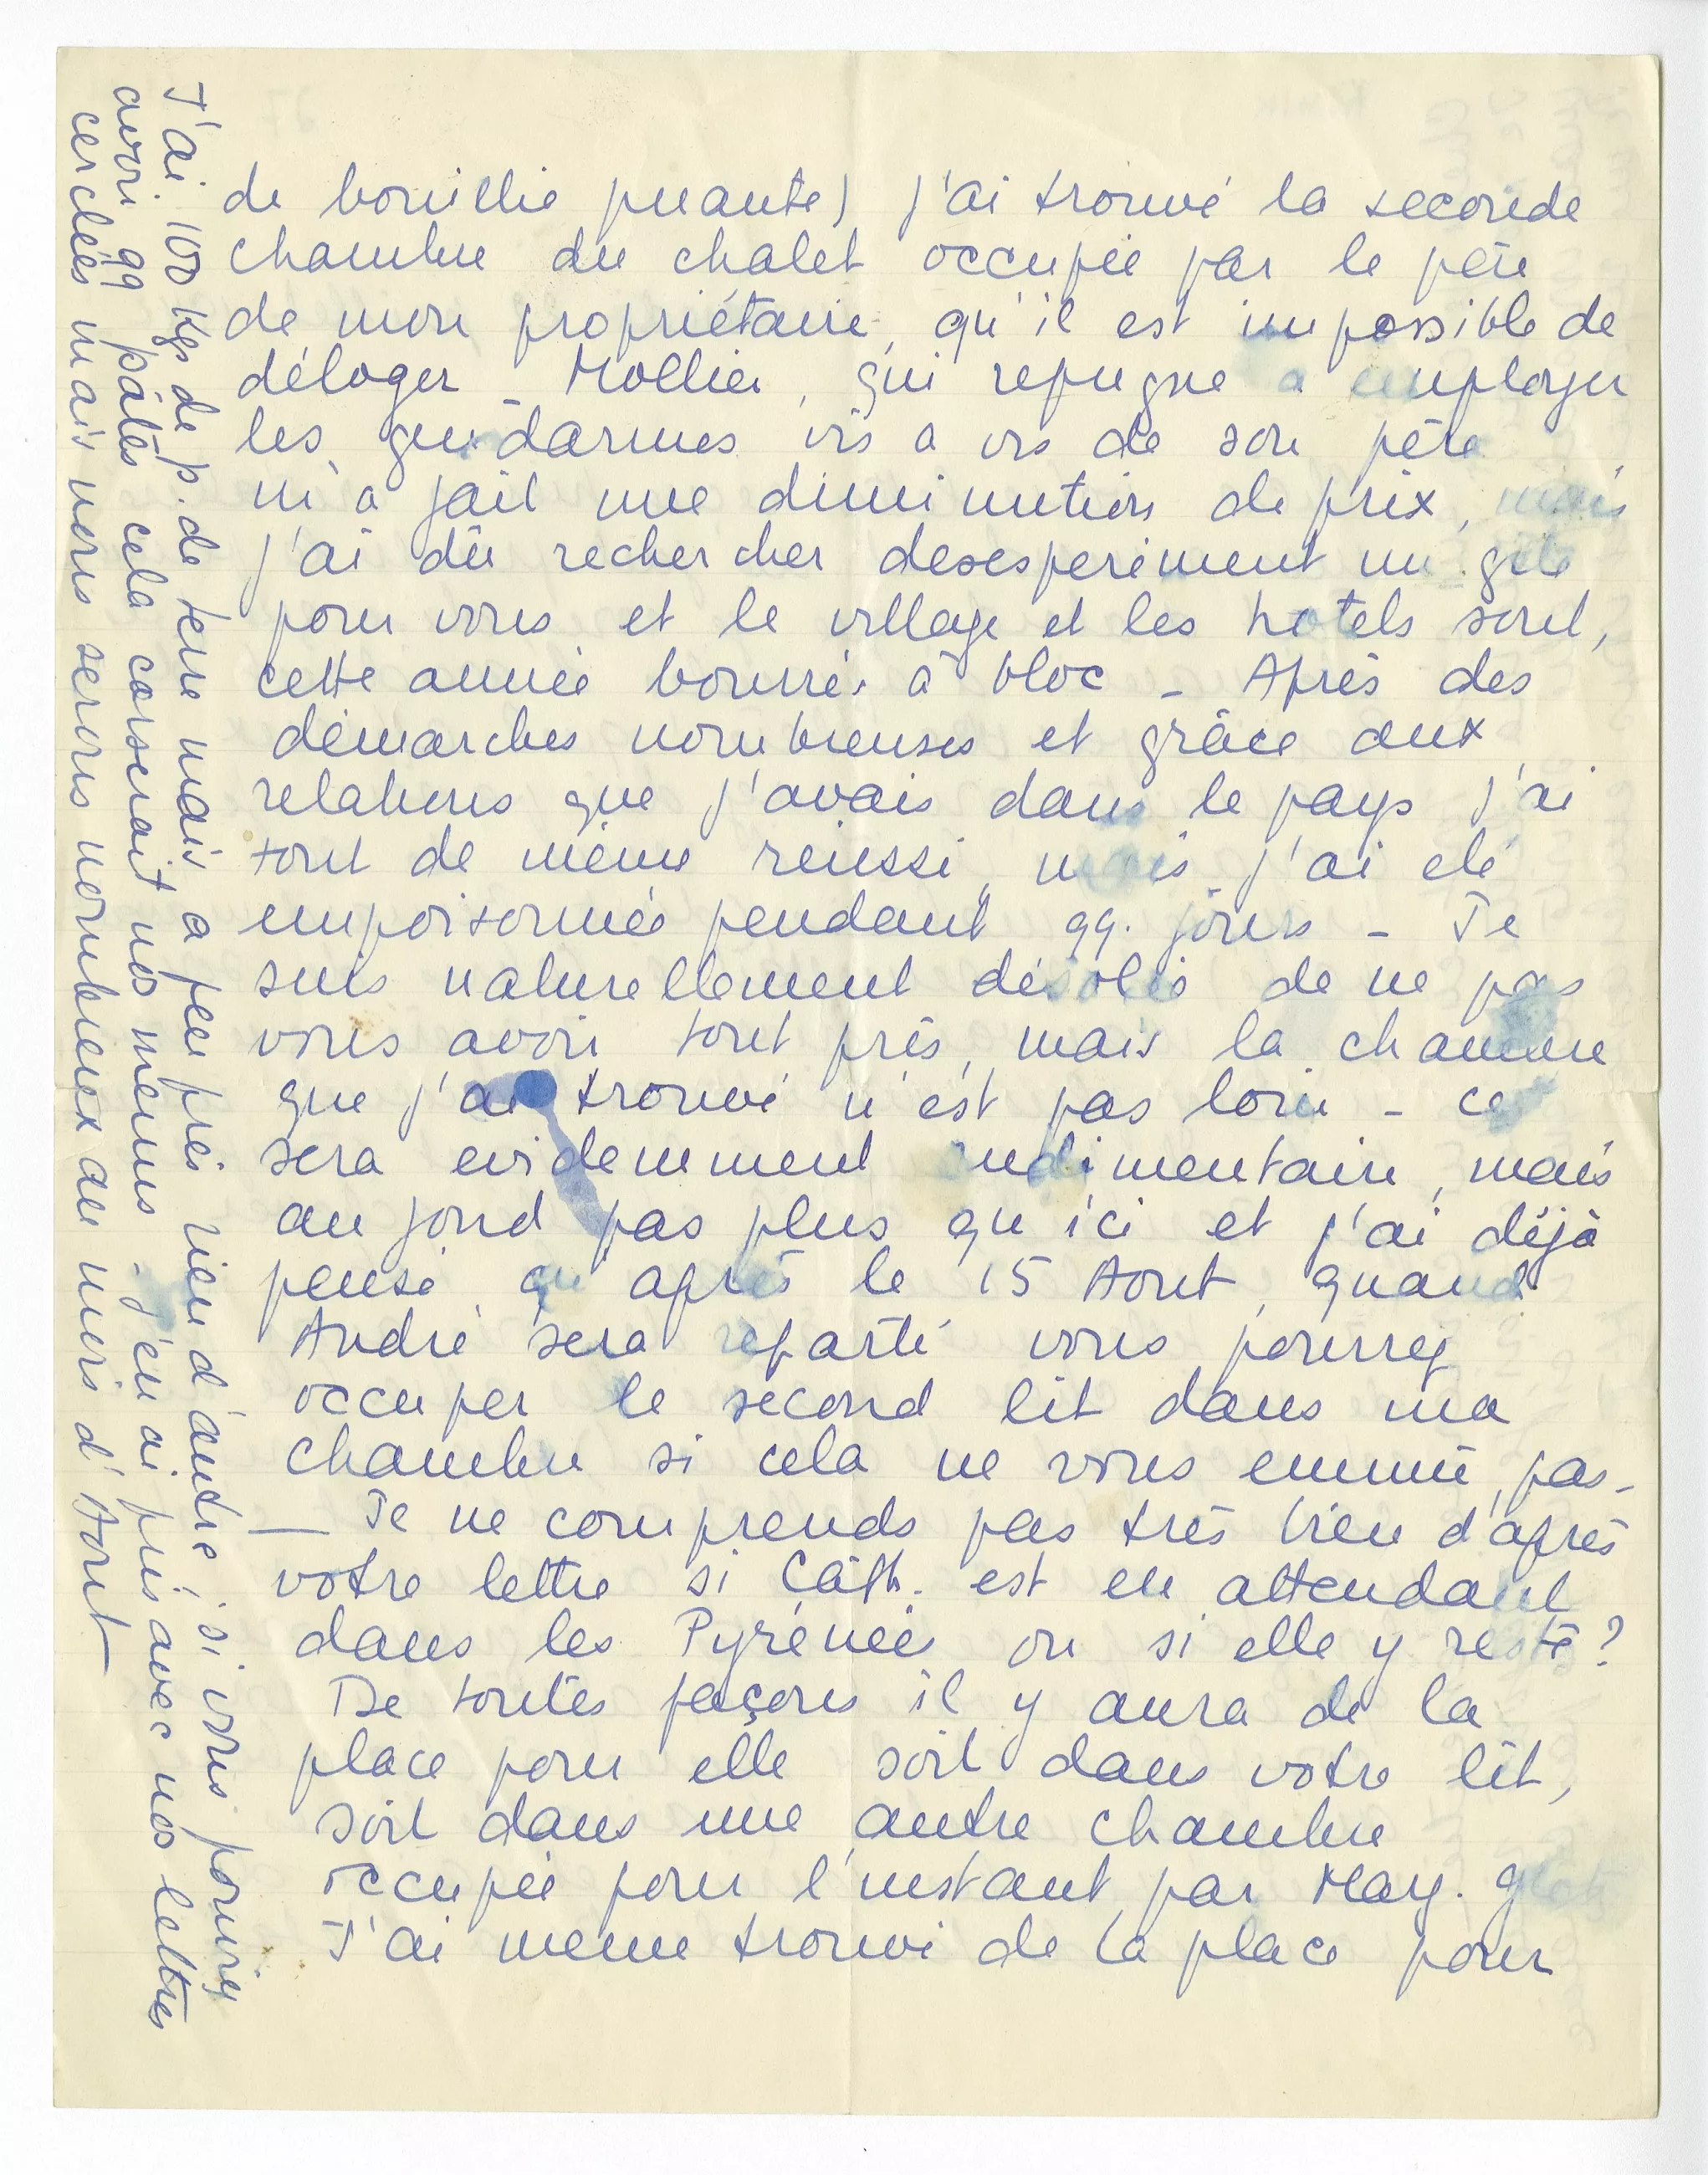 de bouillie puante) j'ai trouvé la seconde
chambre du chalet occupée par le père
de mon propriétaire, qu'il est impossible de
déloger _ Mollier, qui repugne a employer
les gendarmes vis a vis de son père
m'a fait une diminution de prix, mais
j'ai dû rechercher desesperément un gîte
pour vous et le village et les hotels sont,
cette année bourrés à bloc _ Après des
démarches nombreuses et grâce aux
relations que j'avais dans le pays j'ai
tout de même réussi, mais j'ai été
empoisonnée pendant qq. jours _ Je
suis naturellement désolée de ne pas
vous avoir tout près, mais la chambre
que j'ai trouvé n'est pas loin _ ce
sera evidemment rudimentaire, mais
au fond pas plus qu'ici et j'ai déjà
pensé qu'après le 15 Aout, quand
André sera reparti vous pourrez
occuper le second lit dans ma
chambre si cela ne vous ennuie pas _
_ Je ne comprends pas très bien d'après
votre lettre si Cath. est en attendant
dans les Pyrénées ou si elle y reste ?
De toutes façons il y aura de la
place pour elle soit dans votre lit,
soit dans une autre chambre
occupée pour l'instant par May.
J'ai meme trouvé de la place pour
J'ai 100 kgs de p. de terre mais a peu près rien d'autre, si vous pouviez
avoir qq pâtes cela corserait nos menus _ j'en ai pris avec nos lettres
cerclées mais nous serons nombreux au mois d'Aout _